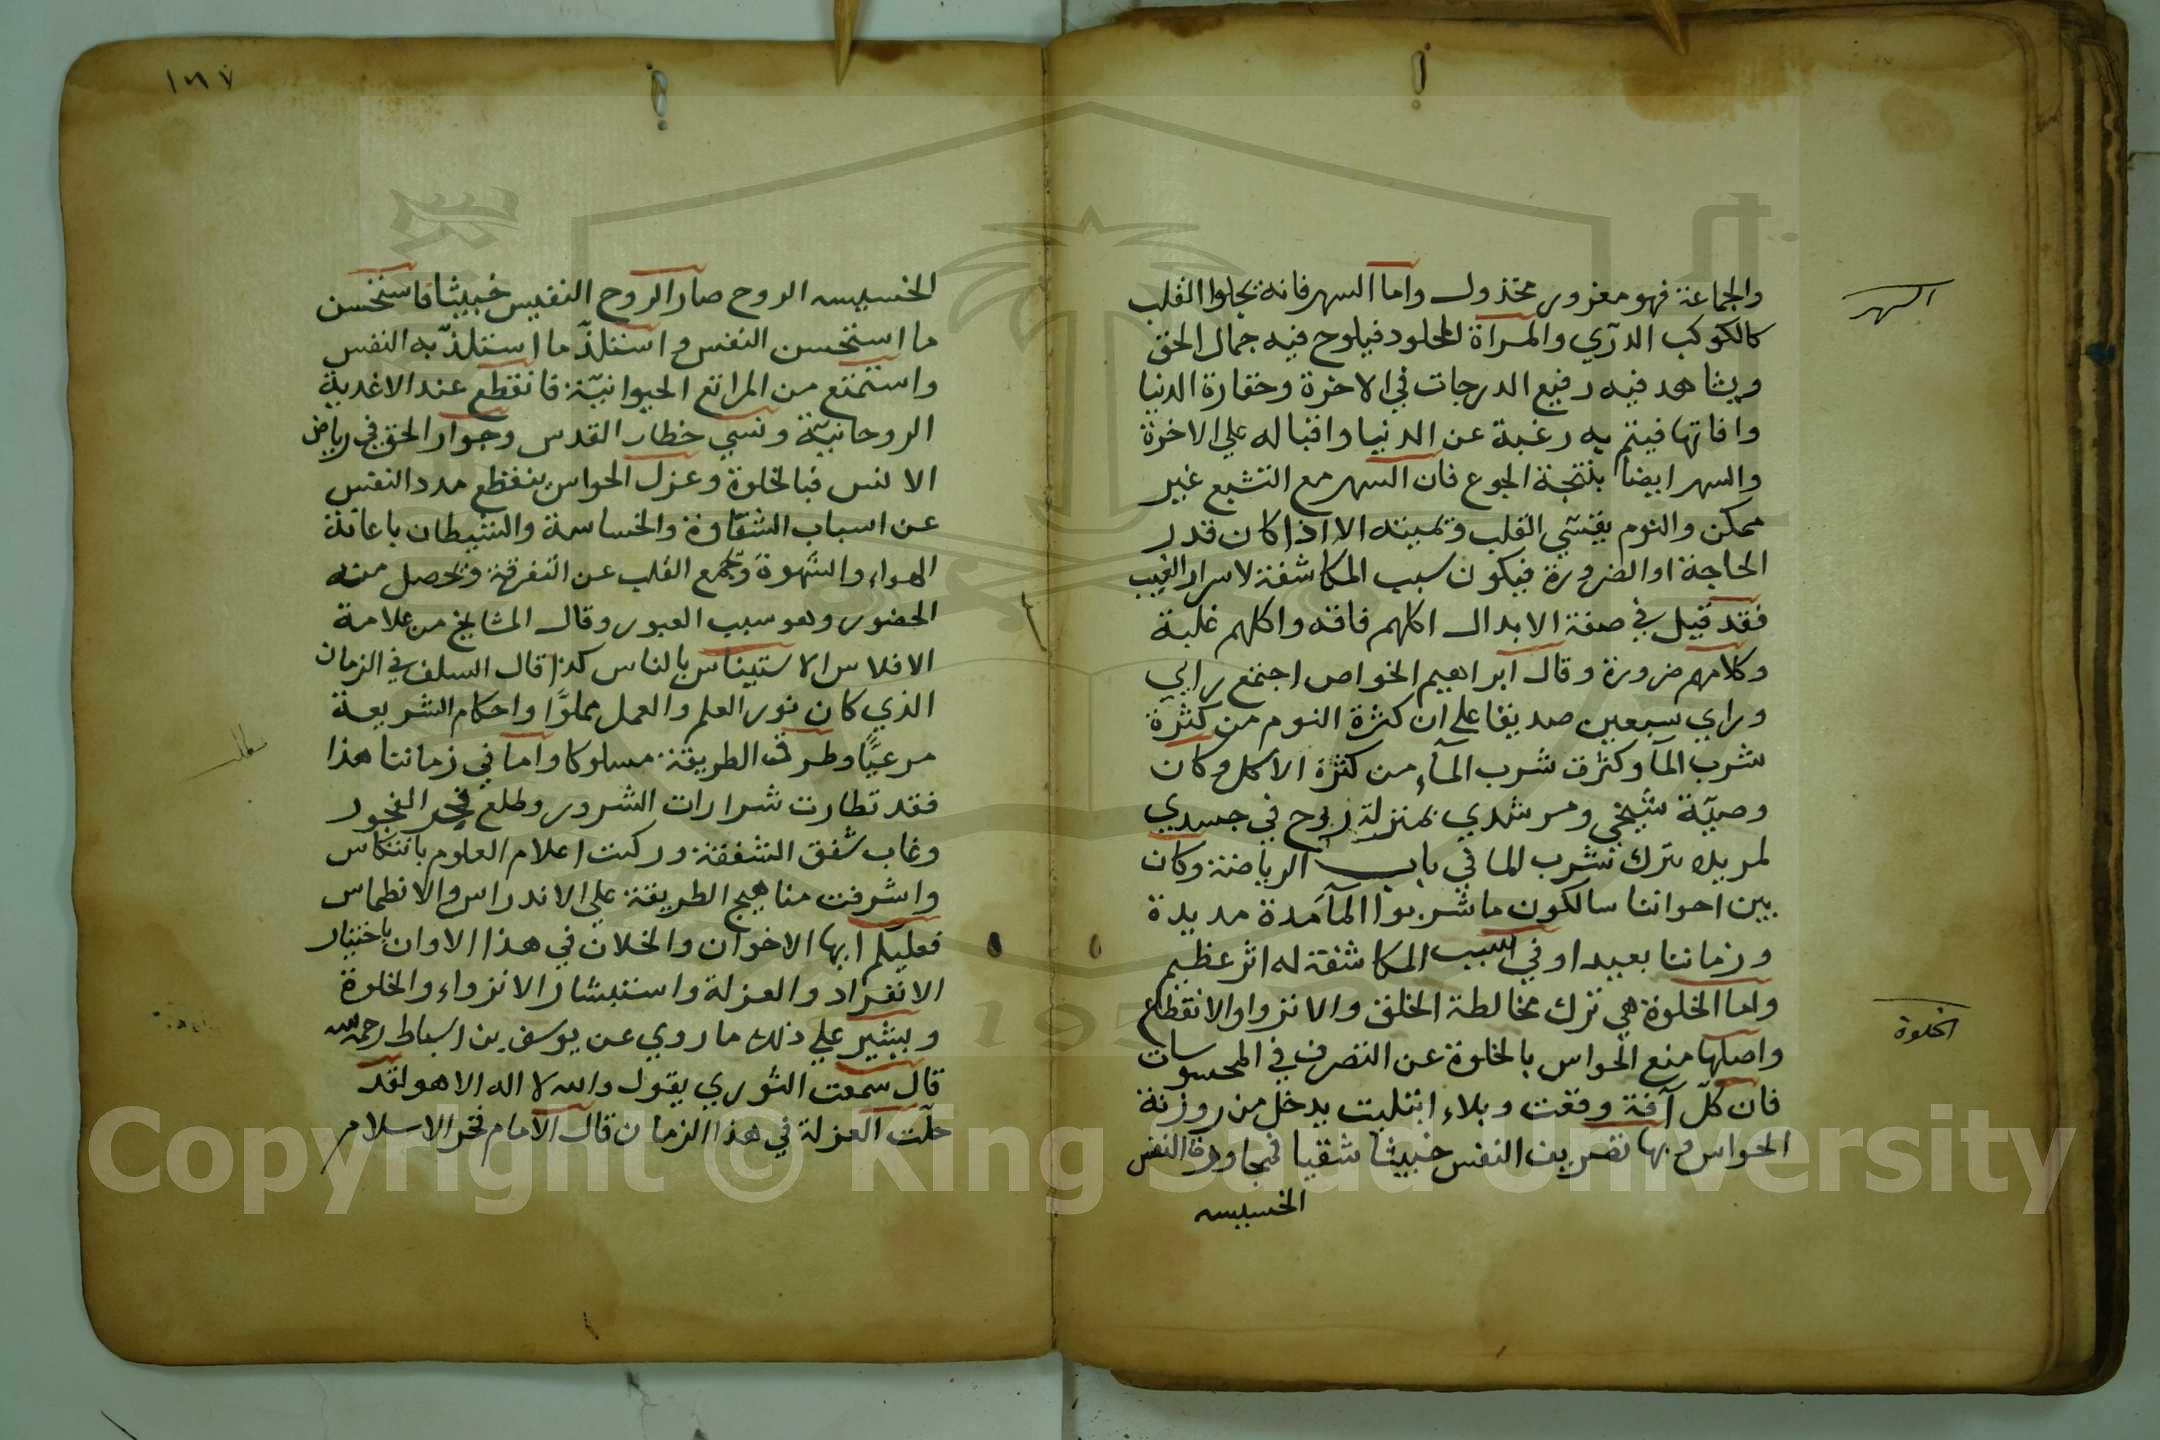 السهر
والجماعة فهو مغرور مخذول واما السهر فانه يجلوا القلب
كالكوكب الدرّي والمراة المجلود فيلوح فيه جمال الحق
ويشاهد فيه رفيع الدرجات في الاخرة وحقارة الدنيا
وافاتها فيتم به رغبة عن الدنيا واقباله علي الاخرة
والسهر ايضا ينتجة الجوع فان السهر مع الشبع غير
ممكن والنوم يقسّي القلب ويميته الا اذا كان قدر
الحاجة او الضرورة فيكون سبب المكاشفة لاسرار الغيب
فقد قيل في صفة الابدال اكلهم فاقه واكلهم غلبة
وكلامهم ضرورة وقال ابراهيم الخواص اجتمع راي
وراي سبعين صديقا علي ان كثرة النوم من كثرة
شرب المآ وكثرت شرب المآء من كثرة الاكل وكان
وصيّة شيخي ومرشدي بمنزلة روح في جسدي
لمريده ترك شرب الما في باب الرياضة وكان
بين احواننا سالكون ما شربوا المآ مدة مديدة
وزماننا بعيدا وفي سبب المكاشفة له اثر عظيم
واما الخلوة هي ترك مخالطة الخلق والانزوا والانقطاع
الخلوة
واصلها منع الحواس بالخلوة عن التصرف في المحسوسات
فان كلّ آفة وقعت وبلاء ابتليت يدخل من روزنة
الحواس وبها تصريف النفس خبيثا شقيا فيجاور النفس
الخسيسه
١٦٧
الخسيسه الروح صار الروح النفيس خبيثا فاستحسن
ما استحسن النفس واستلذّ ما استلذّ به النفس
واستمتع من المراتع الحيوانيّة فانقطع عند الاغدية
الروحانيّة ونسي خطار القدس وجوار الحق في رياض
الانس فبالخلوة وعزل الحواس ينقطع مدد النفس
عن اسباب الشقاوة والخساسة والشيطان باعانة
الهواء والشهوة وتجمع القلب عن التفرقة وتحصل منه
الحضور وهو سبب العبور وقال المشايخ من علامة
الافلاس الاستيناس بالناس كذا قال السلف في الزمان
الذي كان نور العلم والعمل مملوّا واحكام الشريعة
مرعيًّا وطرق الطريقة مسلوكا واما في زماننا هذا
فقد تطارت شرارات الشرور وطلع فجر الفجور
وغاب شفق الشفقة وركبت اعلام العلوم بانتكاس
واشرفت مناهيج الطريقة علي الاندراس والانطماس
فعليكم ايها الاخوان والخلان في هذا الاوان باختيار
الانفراد والعزلة واستبشار الانزواء والخلوة
ويشير علي ذلك ما روي عن يوسف بن اسباط رحمه الله
قال سمعت الثوري يقول والله لا اله الا هو لقد
حلّت العزلة في هذا الزمان قال الامام فخر الاسلام
Copyright © King Saud University